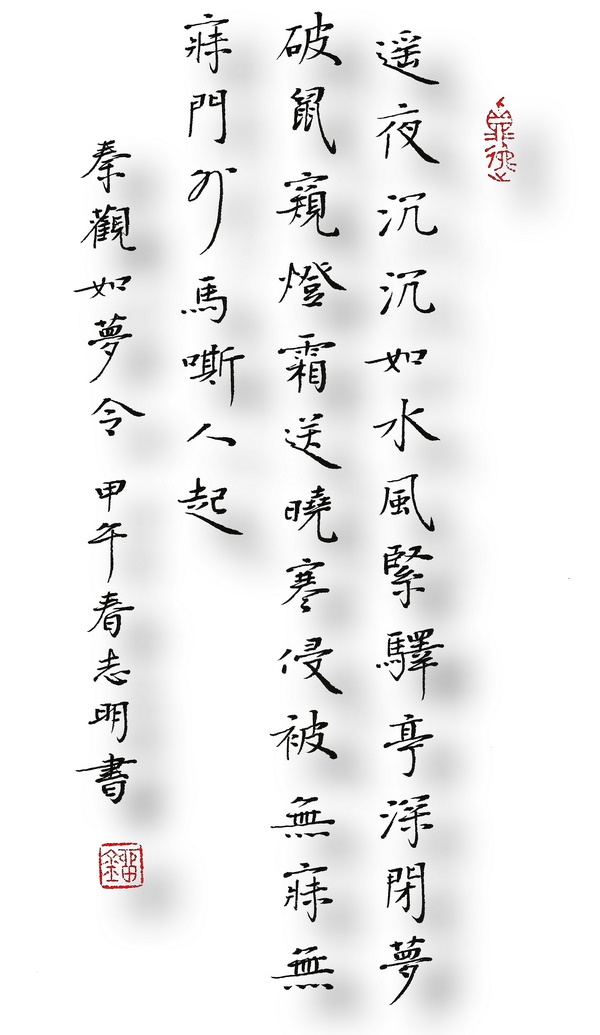 遥夜沉沉如水風緊驛亭深閉夢
破鼠窺燈霜送曉寒侵被無寐無
寐門外馬嘶人起
秦觀如夢令 甲午春志明書